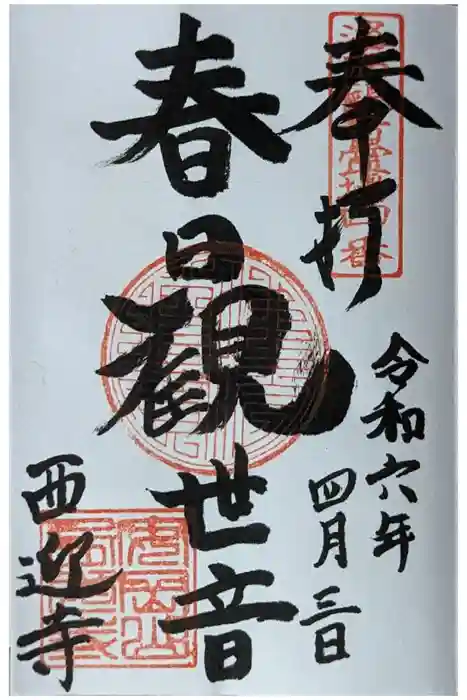 奉打
令和六年
四月三日
春日
観世音
西迎寺